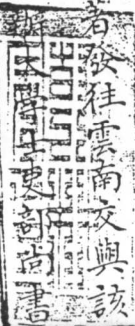 者發往雲南交與該
辦大學士吏部尚書